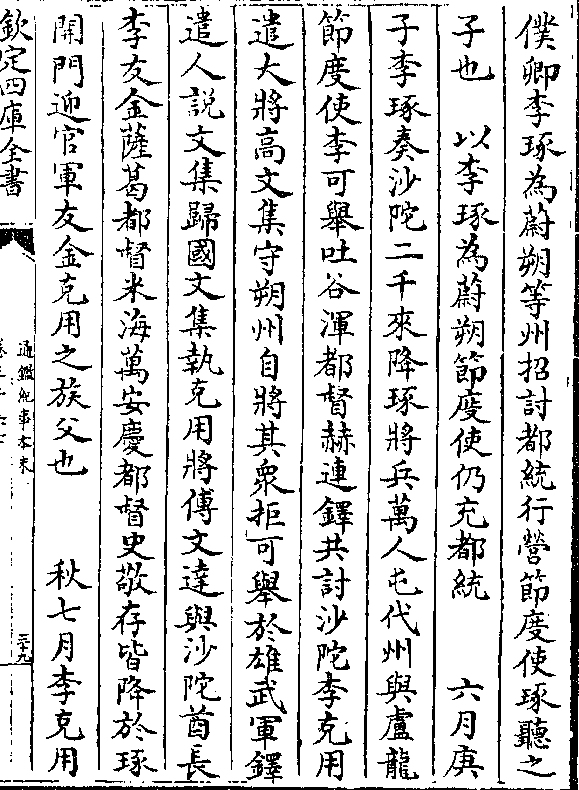 僕卿李琢為蔚朔等州招討都統行營節度使琢聽之
子也　以李琢為蔚朔節度使仍充都統　六月庚
子李琢奏沙陀二千來降琢將兵萬人屯代州與盧龍
節度使李可舉吐谷渾都督赫連鐸共討沙陀李克用
遣大將高文集守朔州自將其衆拒可舉於雄武軍鐸
遣人説文集歸國文集執克用將傅文達與沙陀酋長
李友金薩葛都督米海萬安慶都督史敬存皆降於琢
開門迎官軍友金克用之族父也　秋七月李克用
欽定四庫全書
通鑑紀事本末
二十九